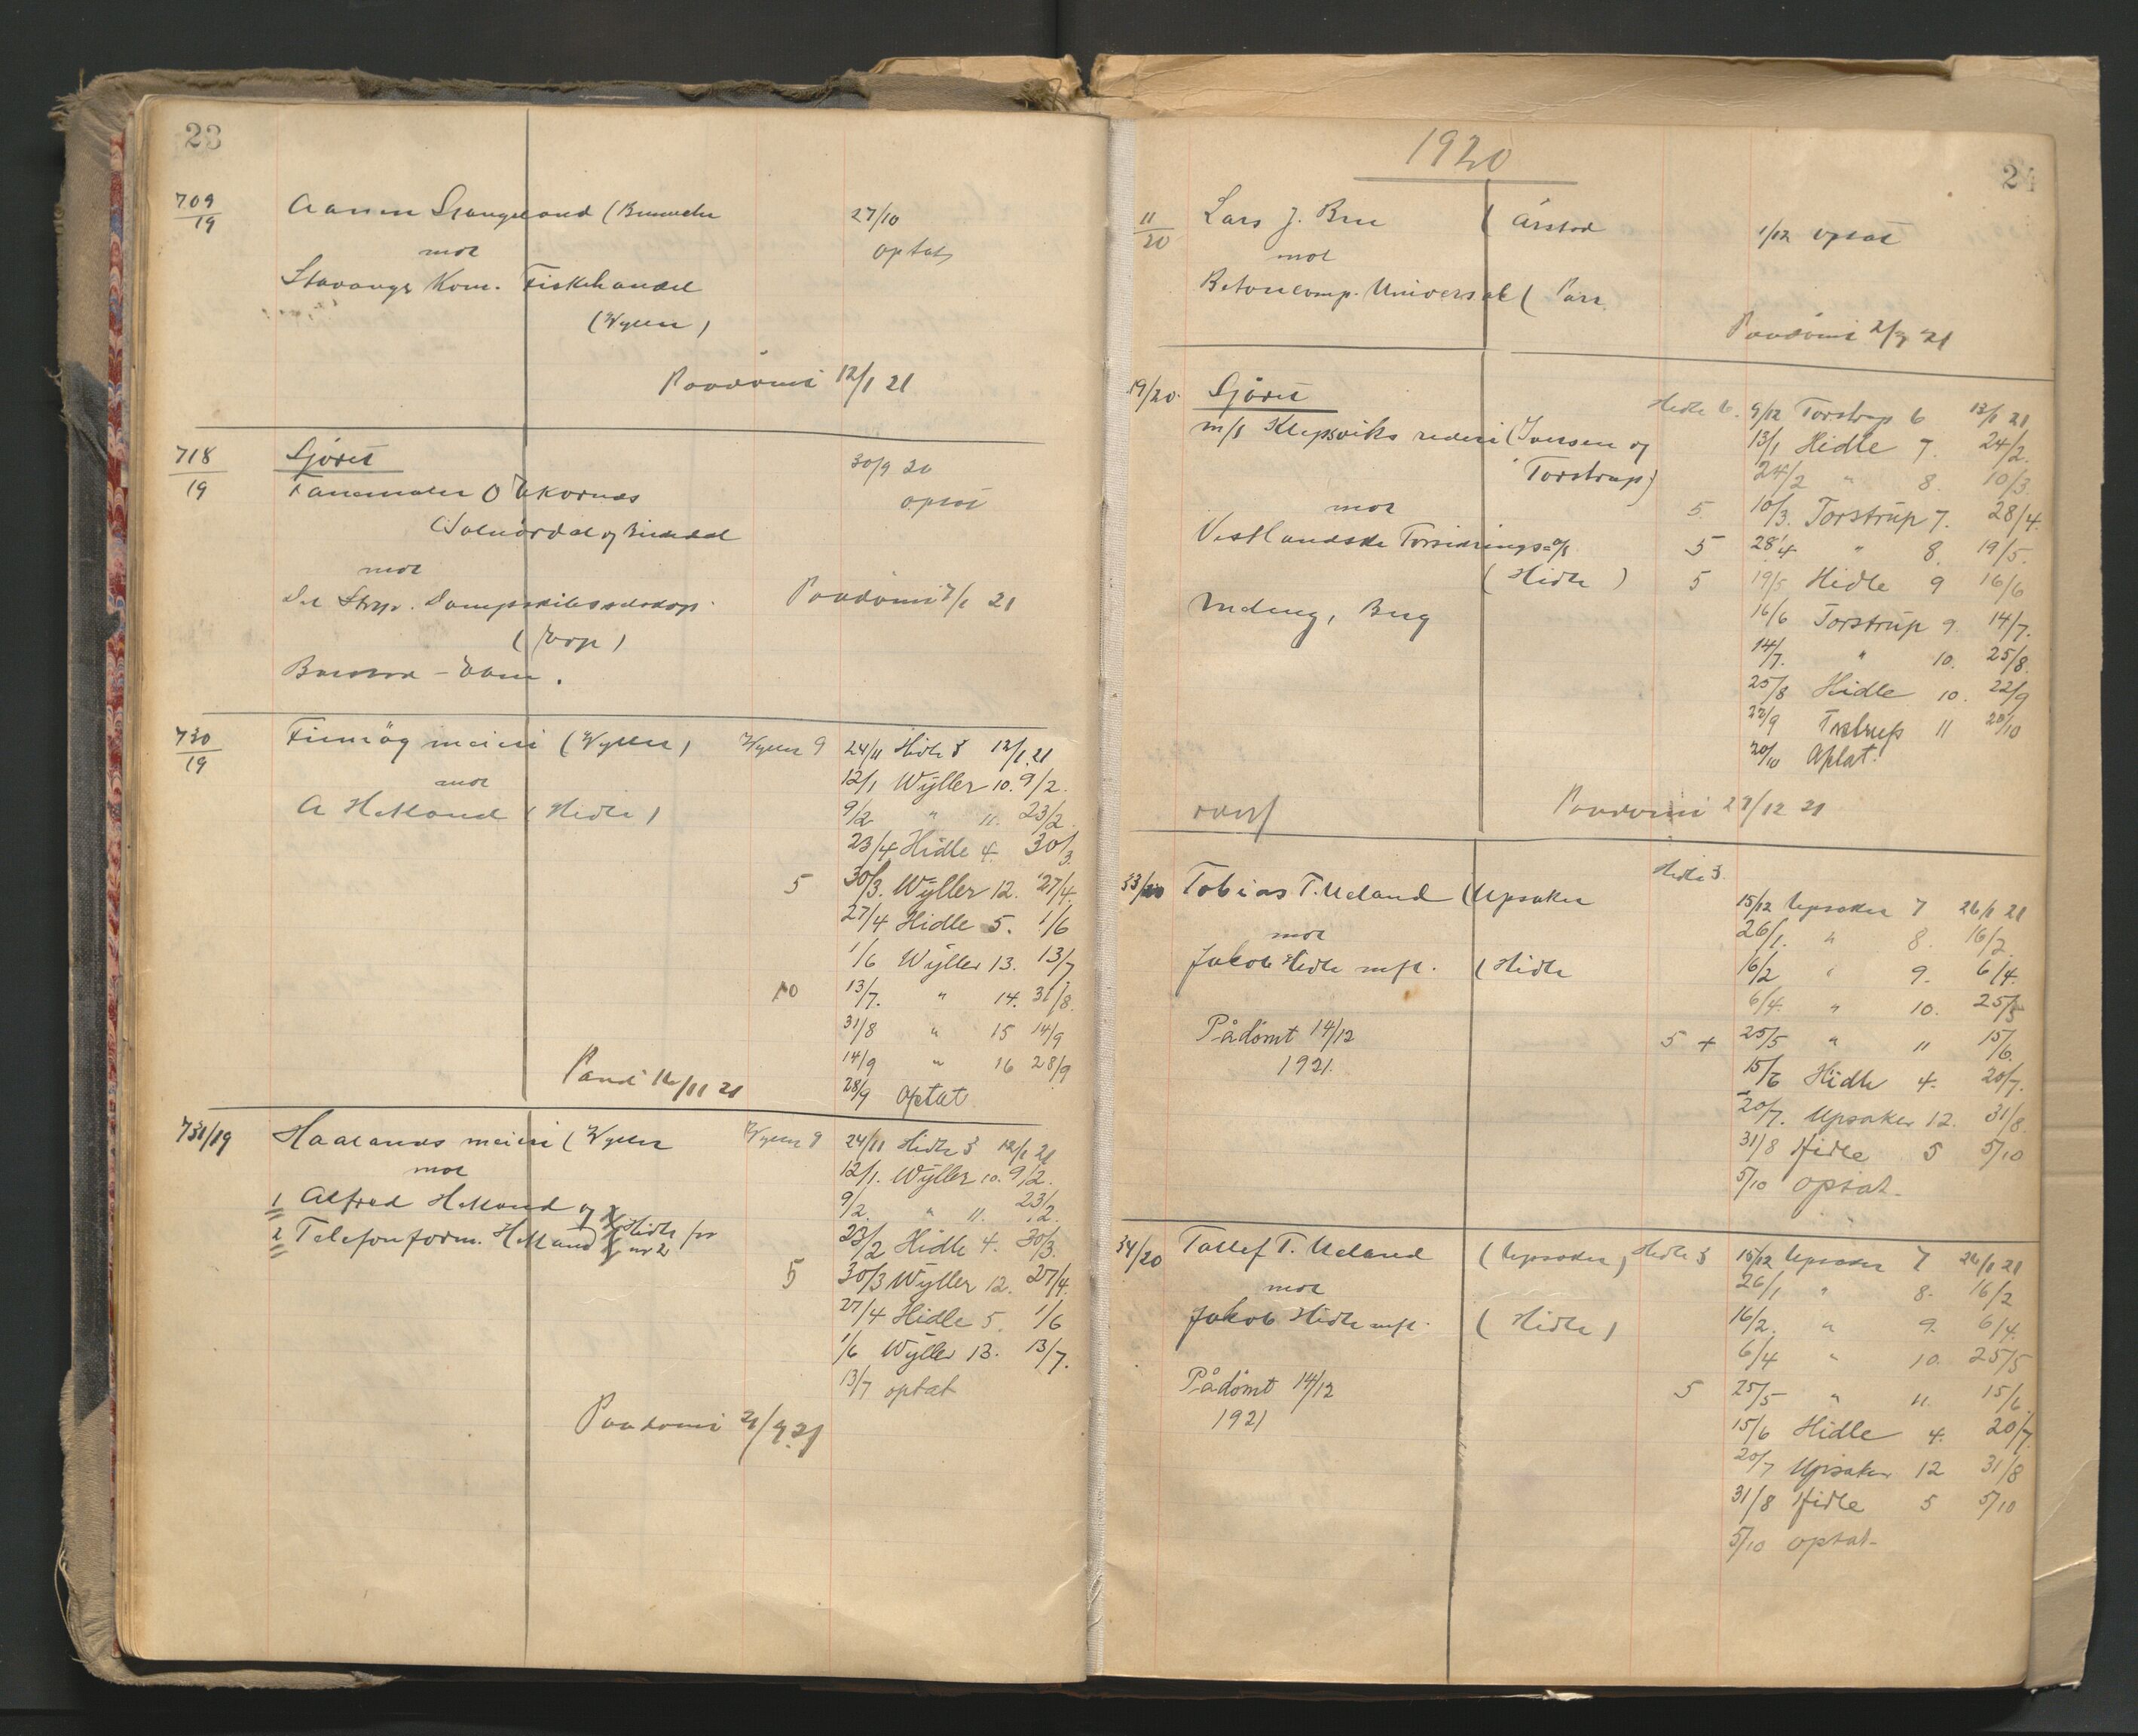 23
709/19
Stangeland (
27/10
mot
optat
Stavanger Kom. Fiskehandel
(Wyller)
Paadömt 12/1 21
718/19
Sjöret
30/9 20
optat
mot
Paadömt
21
730/19
Finnöy meieri (Wyller)
Wyller 9
24/11 Hidle 3 12/1 21
mot
12/1 Wyller 10. 9/2.
A Helland (Hidle)
9/2 " 11. 23/2
23/4 Hidle 4. 30/3.
5 30/3. Wyller 12. 27/4.
27/4 Hidle 5. 1/6
1/6 Wyller 13. 13/7
10 13/7. " 14. 31/8.
31/8 " 15 14/9
14/9 " 16 28/9
28/9 optat
731/19
Haalands meieri (Wyller
Wyller 9
24/11 Hidle 3 12/1 21
mot
12/1. Wyller 10. 9/2.
1 Alfred Helland og
9/2. " 11. 23/2.
2 Telefonform. Helland Hidle for nr 2
23/2 Hidle 4. 30/3.
5 30/3 Wyller 12. 27/4.
27/4 Hidle 5. 1/6
1/6 Wyller 13. 13/7.
13/7 optat
Paadömt
24
1920
11/20
Lars J. Bru (Årstad
1/12 optat
mot
Betoncomp. Universal (
Paadömt
19/20.
Sjöret
Hidle 6. 9/12 Torstrup 6 13/1 21
m/s Klepsviks rederi (Iversen og
13/1 Hidle 7. 24/2.
Torstrup)
24/2 " 8. 10/3.
mot
5. 10/3. Torstrup 7. 28/4.
Vestlandske
5 28/4 " 8. 19/5.
(Hidle)
5 19/5 Hidle 9 16/6
Berg
16/6 Torstrup 9. 14/7.
14/7. " 10. 25/8.
25/8 Hidle 10. 22/9
22/9 Torstrup 11 20/10
20/10 Optat.
Paadömt
33/20
Tobias T. Ueland (Upsaker
Hidle 3.
15/12 Upsaker 7 26/1 21
mot
26/1. " 8. 16/2.
Jakob Hidle mfl. (Hidle
16/2 " 9. 6/4.
6/4. " 10. 25/5
Pådömt 14/12
1921.
5 + 25/5 " 11 15/6.
15/6 Hidle 4. 20/7.
20/7. Upsaker 12. 31/8.
31/8 Hidle 5 5/10
5/10 optat.
34/20
Tallef T. Ueland (Upsaker)
Hidle 3
15/12 Upsaker 7 26/1 21
mot
26/1 " 8. 16/2
Jakob Hidle mfl. (Hidle)
16/2. " 9. 6/4.
6/4 " 10. 25/5
Pådömt 14/12
1921
5 25/5 " 11. 15/6.
15/6 Hidle 4. 20/7
20/7 Upsaker 12 31/8
31/8 Hidle 5 5/10
5/10 optat.